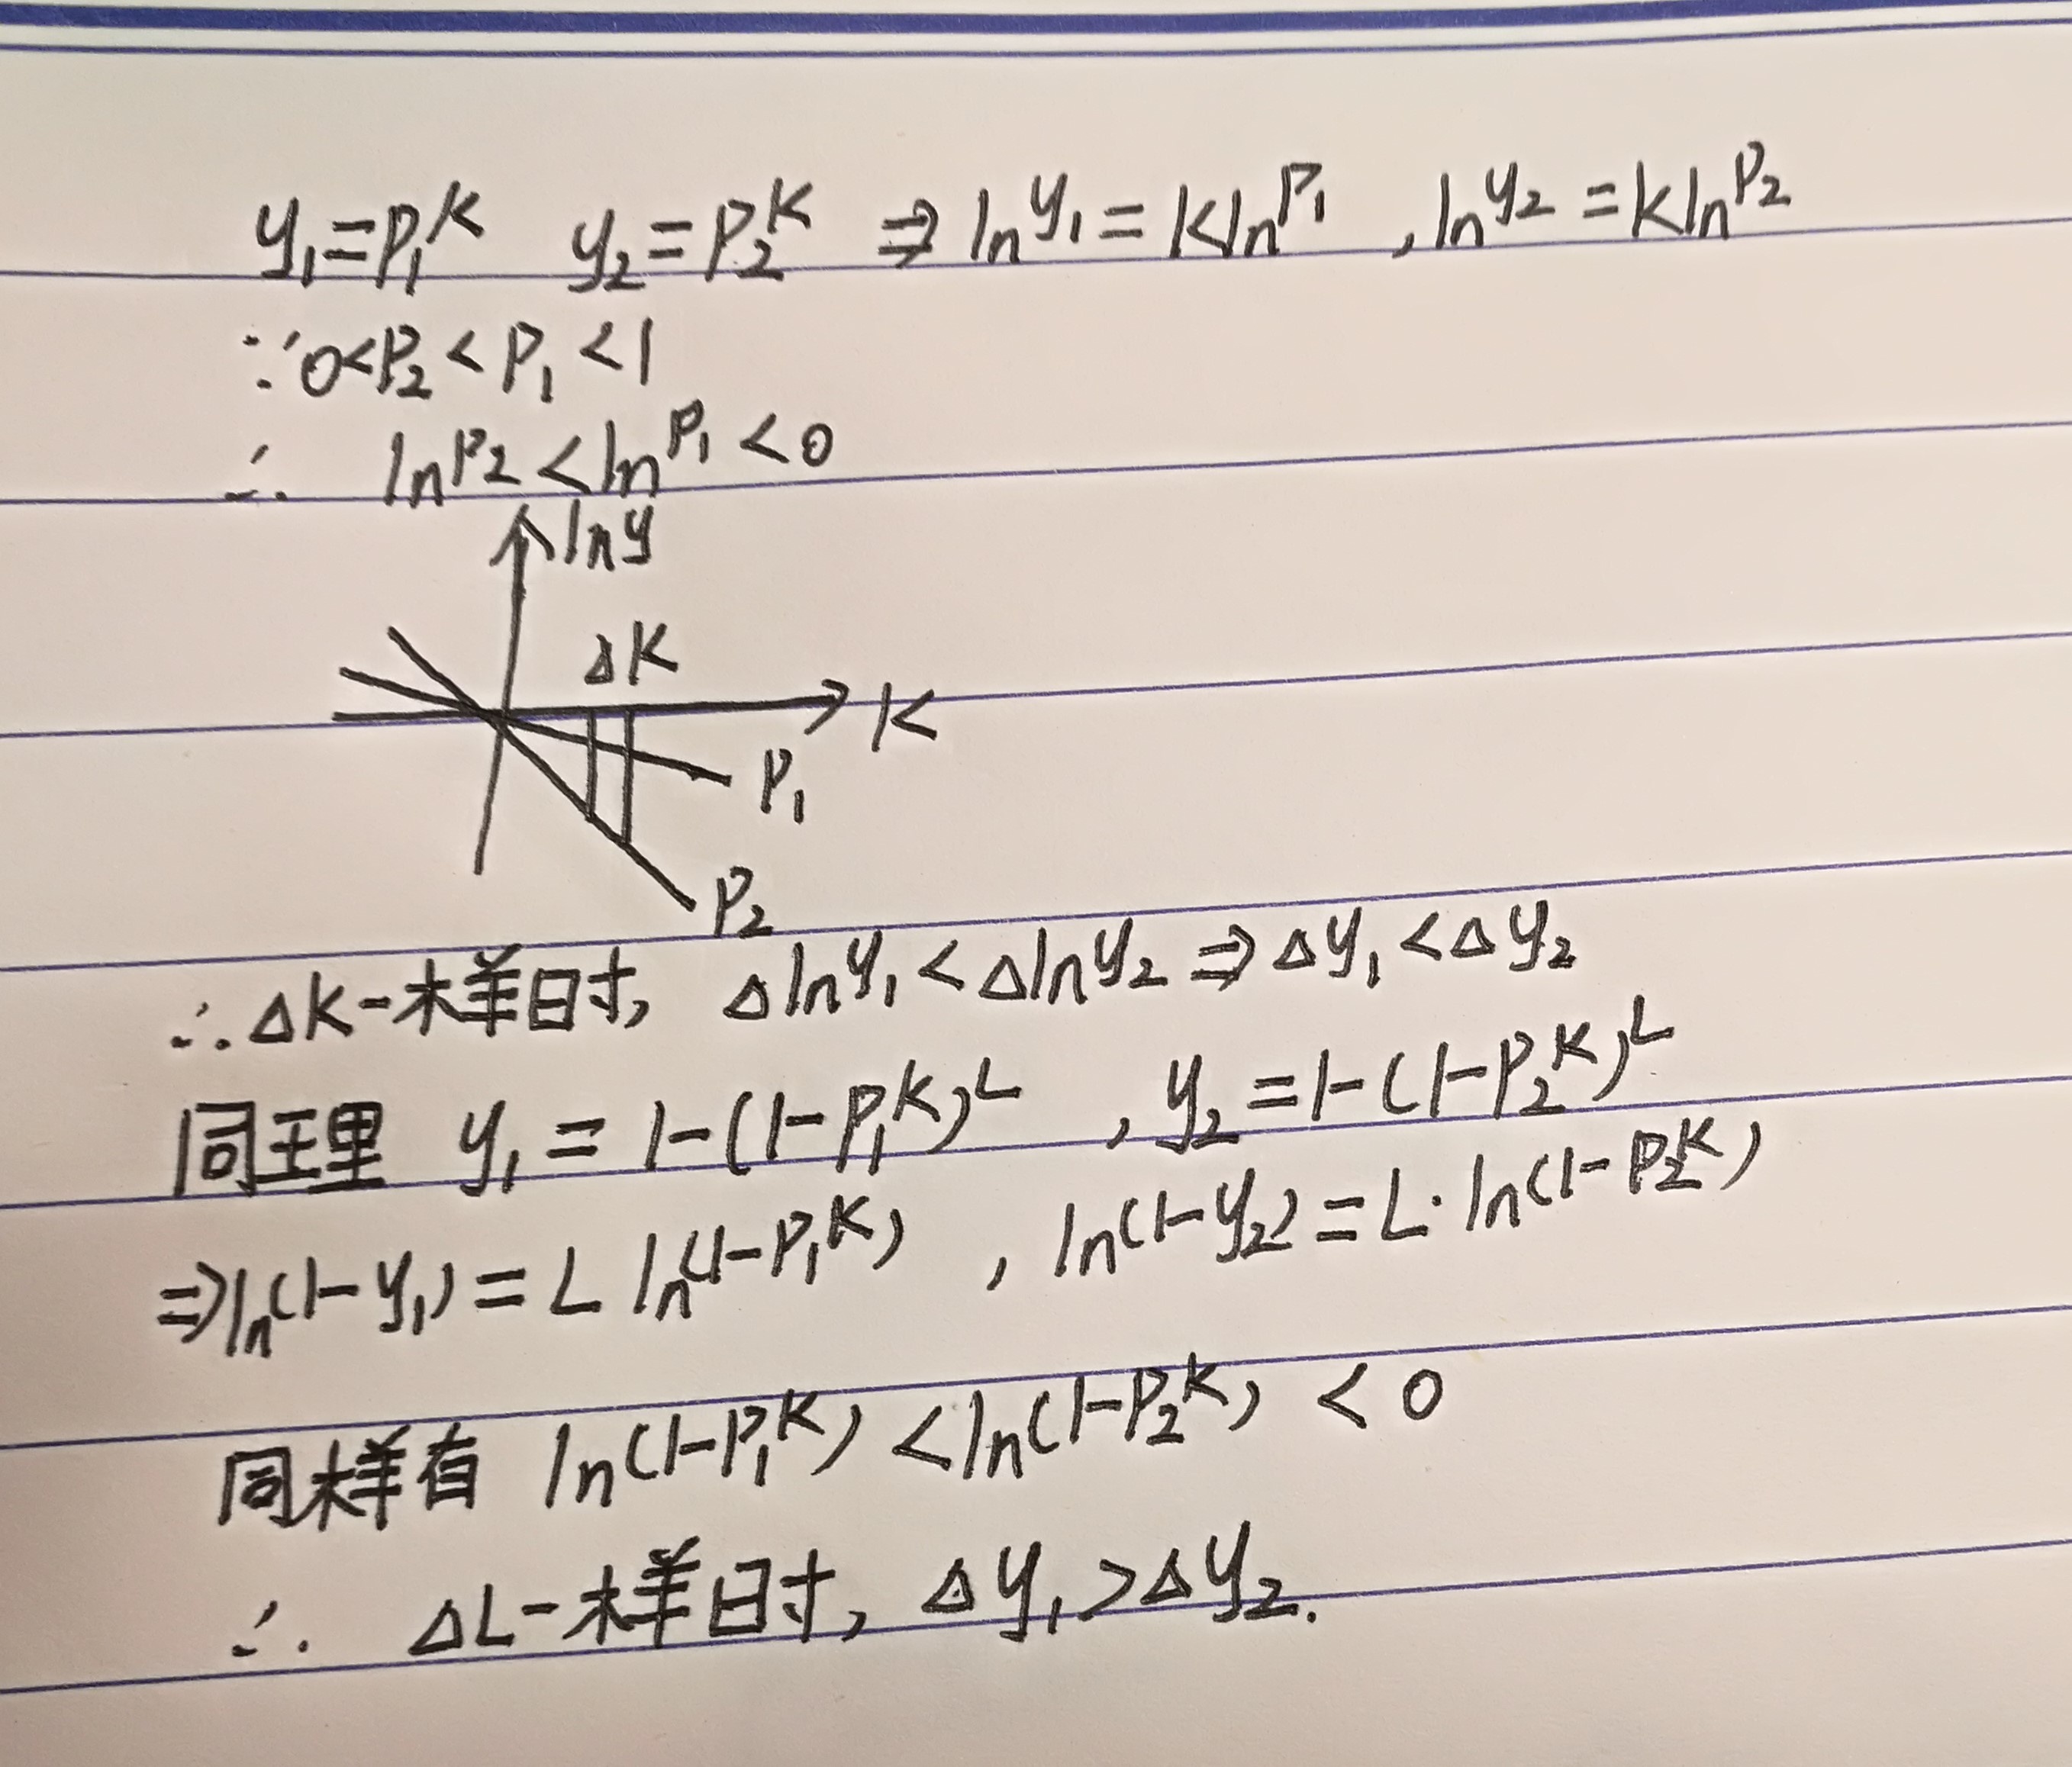 y₁=p₁ᴷ  y₂=p₂ᴷ ⇒ ln y₁=k ln p₁ , ln y₂=k ln p₂
∵0<p₂<p₁<1
∴ ln p₂<ln p₁<0
ln y
ΔK
K
P₁
P₂
∴ΔK一样时, Δln y₁<Δln y₂⇒Δy₁<Δy₂
同理 y₁=1-(1-p₁ᴷ)ᴸ , y₂=1-(1-p₂ᴷ)ᴸ
⇒ln(1-y₁)=L ln(1-p₁ᴷ) , ln(1-y₂)=L·ln(1-p₂ᴷ)
同样有 ln(1-p₁ᴷ)<ln(1-p₂ᴷ)<0
∴ ΔL一样时, Δy₁>Δy₂.